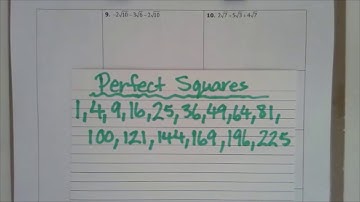 9. -2√10 - 3√6 - 2√10
10. 2√7 + 5√7 + 4√7
Perfect Squares
1,4,9,16,25,36,49,64,81,
100,121,144,169,196,225